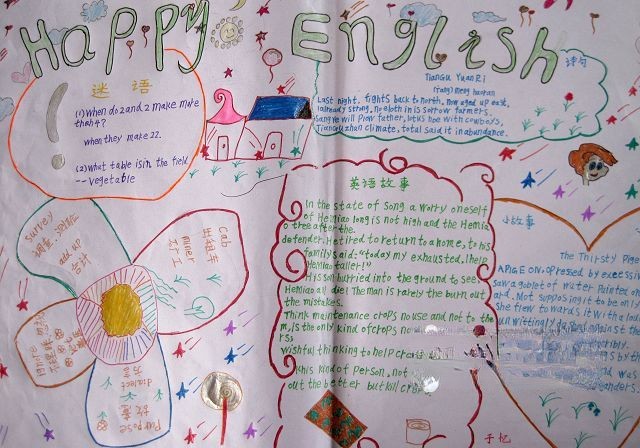 Happy English
谜 语
(1) When do 2 and 2 make more
than 4?
when they make 22.
(2) what table is in the field
-- vegetable
诗句
TianGu YuanRi
(Tang) Meng haoran
Last night, fights back to north, now aged up east,
already strong, no
in sorrow farmers.
Sang ye will Pray father, lotus hoe with cowboys,
Tianou zhan climate, total said it in abundance.
英语故事
In the state of Song a worry oneself
of Hemiao long is not high and the Hemia
o tree after the
defender, He tired to return to a home, to his
family said: "today my exhausted, I help
Hemiao taller!"
His son hurried into the ground to see,
Hemiao all die! The man is rarely the burn out
the mistakes.
Think maintenance crops no use and not to the
m, is the only kind of crops no
rs;
wishful thinking to help
this kind of person, not
out the better but kill
小故事
The Thirsty Pige
A PIGEON, oppressed by excessiv
saw a goblet of water Painted on
ard. Not supposing it to be only
she flew towards it with a loud
unwittingly
rribly.
gs by th
nd was
anders.
survey
add up
合计
Cab
出租车
miner
矿工
ignore
dialect
方言
Purpose
故意
于忆